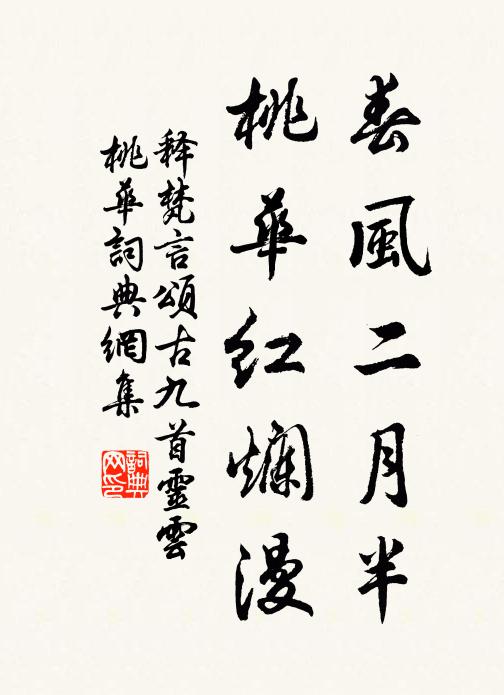 春風二月半
桃華紅爛漫
释梵言頌古九首靈雲
桃華詞典網集
詞典
网印